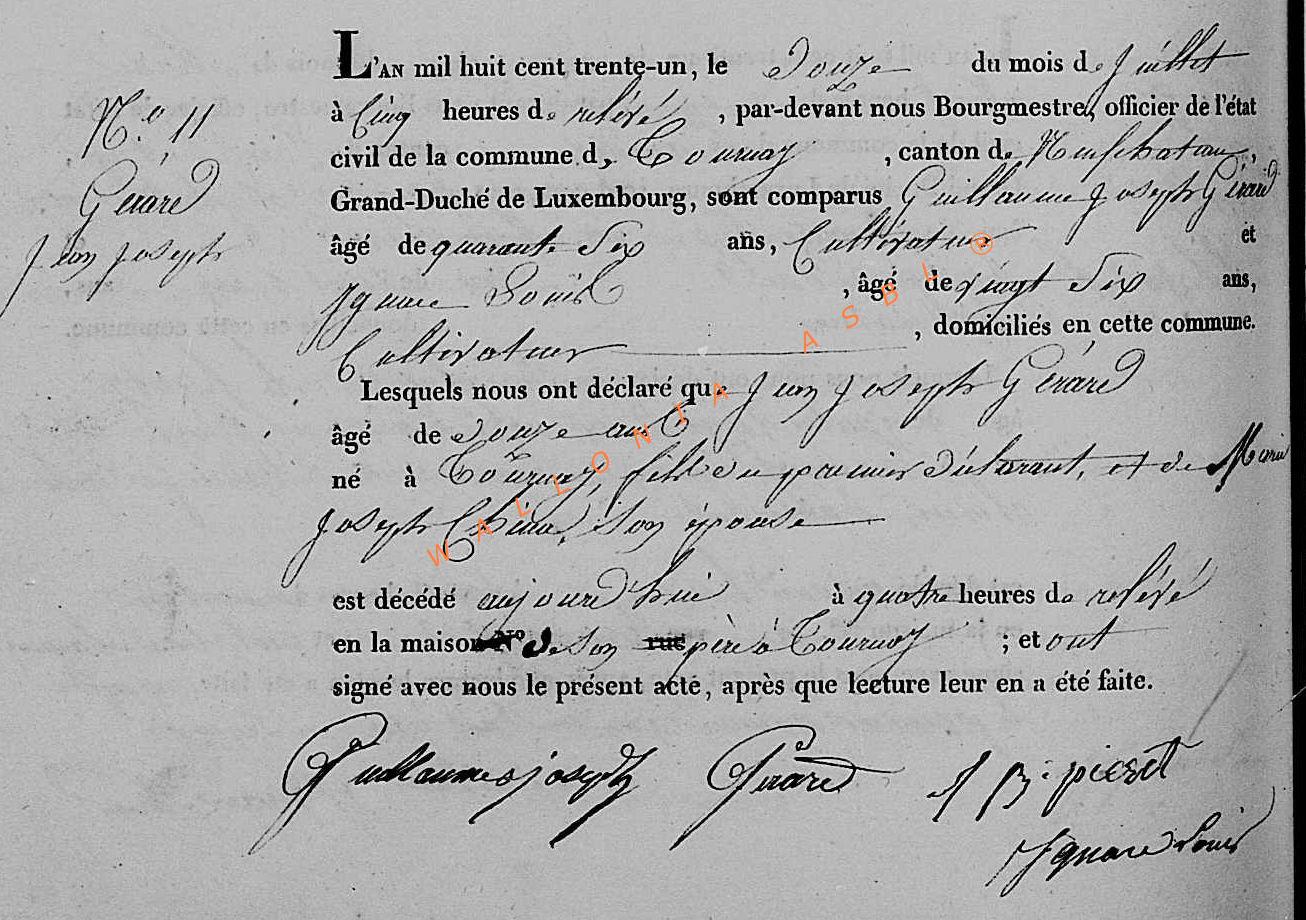 N.° 11
Gérard
Jean Joseph
L'AN mil huit cent trente-un, le Douze du mois de Juillet
à Cinq heures de relévé, par-devant nous Bourgmestre, officier de l'état
civil de la commune de Tournay, canton de Neufchateau,
Grand-Duché de Luxembourg, sont comparus Guillaume Joseph Gérard
âgé de quarante Six ans, Cultivateur et
Ignace Louis, âgé de vingt Six ans,
Cultivateur, domiciliés en cette commune.
Lesquels nous ont déclaré que Jean Joseph Gérard
âgé de Douze ans
né à Tournay, fils du premier déclarant, et de Marie
Joseph son épouse
est décédé aujourd'hui à quatre heures de relévé
en la maison N° de son rue père à Tournay ; et ont
signé avec nous le présent acte, après que lecture leur en a été faite.
Guillaume joseph Gérard pieret
Ignace Louis
WALLONIA ASBL ®